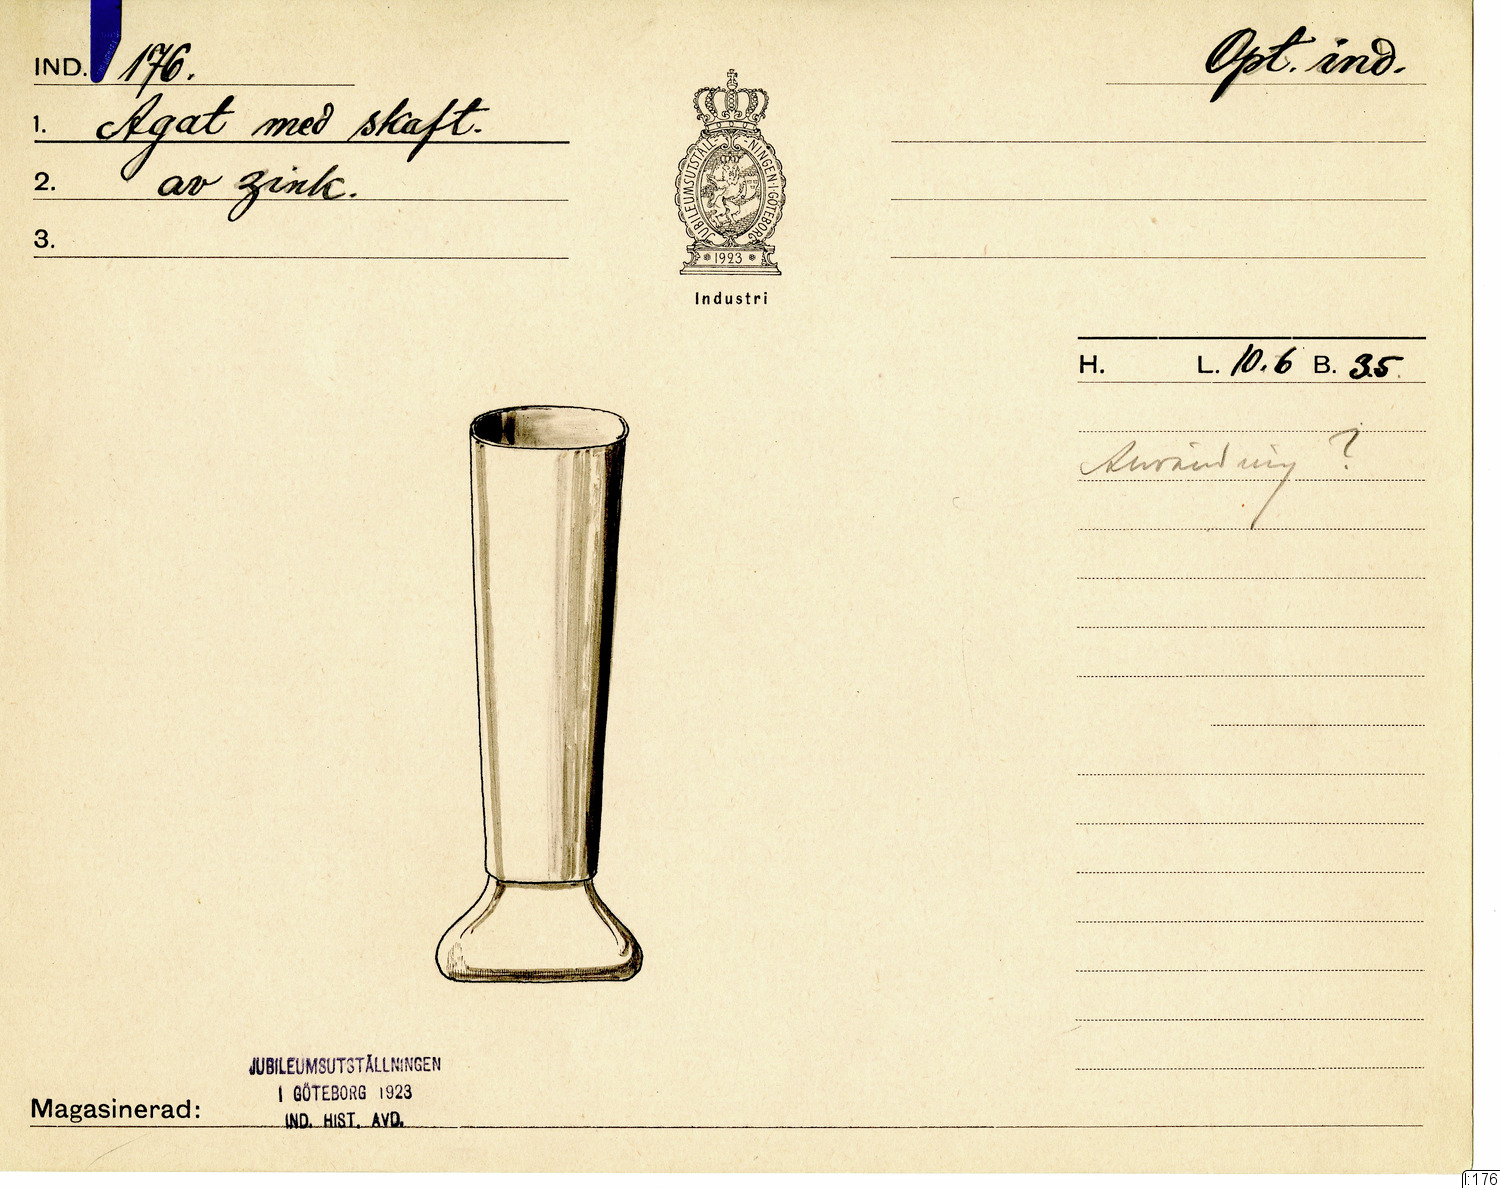 IND. 176.
Opt. ind.
1. Agat med skaft.
2. av zink.
3.
JUBILEUMSUTSTÄLL-NINGEN·I·GÖTEBORG
1923
Industri
H. L. 10.6 B. 3.5
Användning ?
JUBILEUMSUTSTÄLLNINGEN
I GÖTEBORG 1923
IND. HIST. AVD.
Magasinerad:
I:176